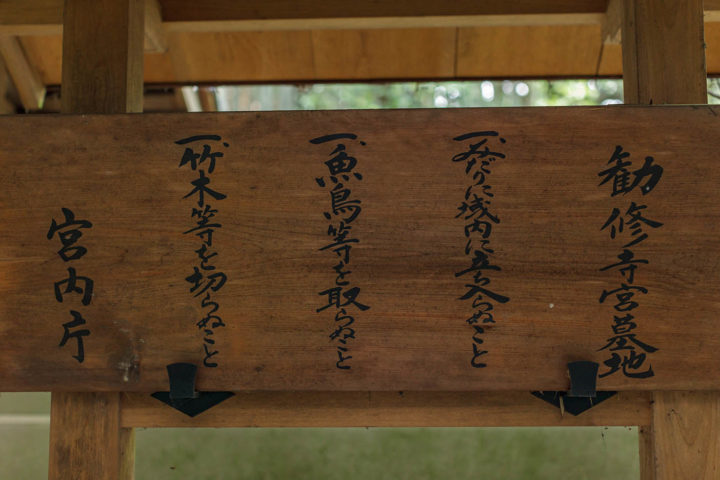 勧修寺宮墓地
一、みだりに域内に立ち入らぬこと
一、魚鳥等を取らぬこと
一、竹木等を切らぬこと
宮内庁